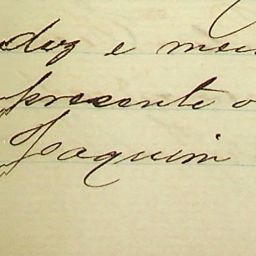 dez e meia
presente o
Joaquim